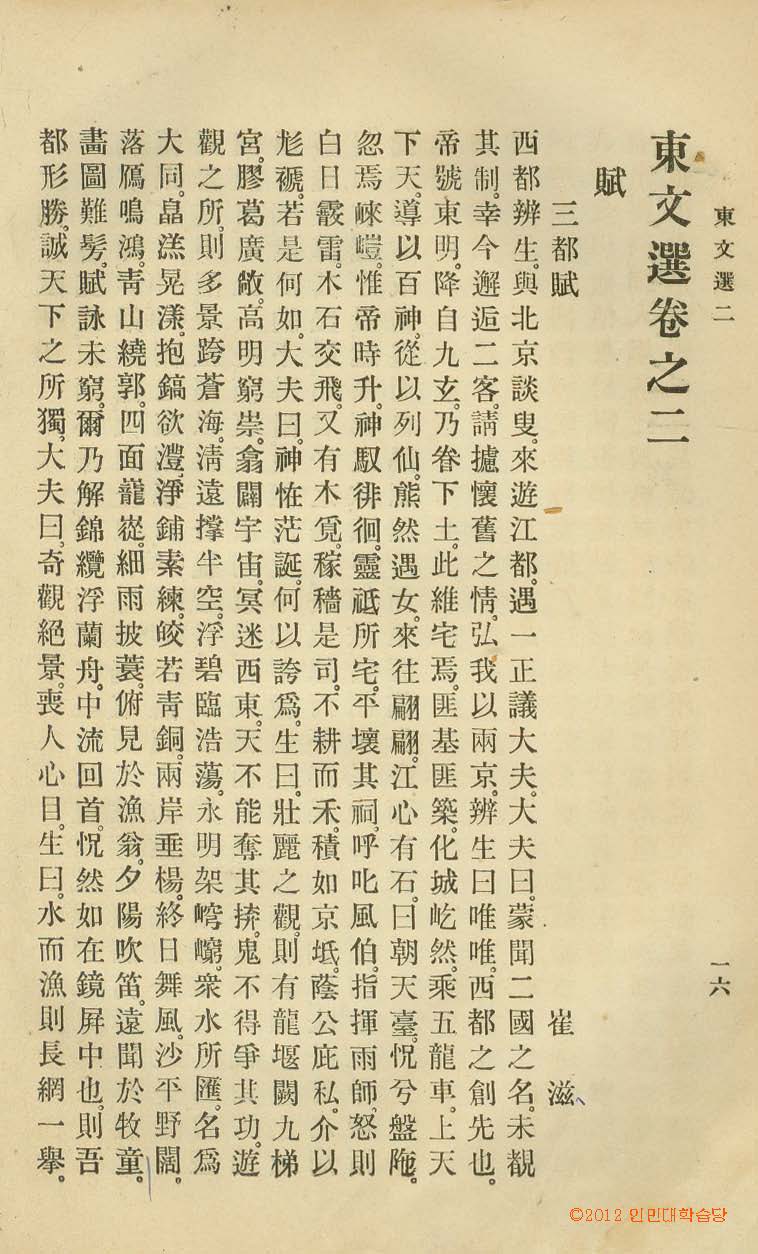 東文選二
一六
東文選卷之二
賦
三都賦 崔滋
西都辨生。與北京談叟。來遊江都。遇一正議大夫。大夫曰。蒙聞二國之名。未覩
其制。幸今邂逅二客。請攄懷舊之情。弘我以兩京。辨生曰唯唯。西都之創先也。
帝號東明。降自九玄。乃眷下土。此維宅焉。匪基匪築。化城屹然。乘五龍車。上天
下天。導以百神。從以列仙。熊然遇女。來往翩翩。江心有石。曰朝天臺。怳兮盤陁。
忽焉崍嵦。惟帝時升。神馭徘徊。靈祗所宅。平壤其祠。呼叱風伯。指揮雨師。怒則
白日霰雷。木石交飛。又有木覓。稼穡是司。不耕而禾。積如京坻。蔭公庇私。介以
尨褫。若是何如。大夫曰。神怪茫誕。何以誇爲。生曰。壯麗之觀。則有龍堰闕九梯
宮。膠葛廣敞。高明窮崇。翕闢宇宙。冥迷西東。天不能奪其擠。鬼不得爭其功。遊
觀之所。則多景跨蒼海。淸遠撑半空。浮碧臨浩蕩。永明架崆巆。衆水所匯。名爲
大同。皛溔晃漾。抱鎬欲灃。淨鋪素練。皎若靑銅。兩岸垂楊。終日舞風。沙平野闊。
落鴈鳴鴻。靑山繞郭。四面巃嵸。細雨披蓑。俯見於漁翁。夕陽吹笛。遠聞於牧童。
畵圖難髣。賦詠未窮。爾乃解錦纜浮蘭舟。中流回首。怳然如在鏡屛中也。則吾
都形勝。誠天下之所獨。大夫曰。奇觀絕景。喪人心目。生曰。水而漁則長網一擧。
©2012 인민대학습당